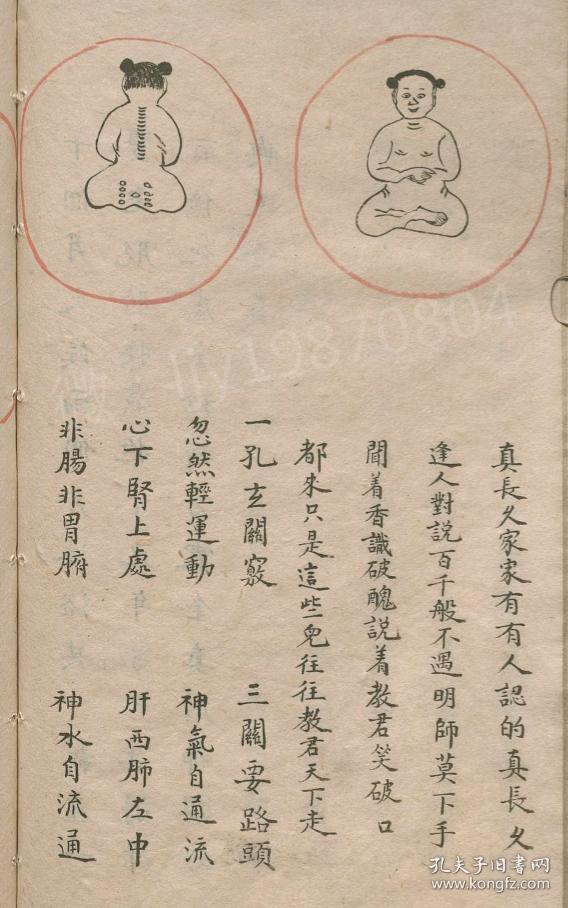 真長久家家有有人認的真長久
逢人對說百千般不遇明師莫下手
聞着香識破醜說着教君笑破口
都來只是這些兒往往教君天下走
一孔玄關竅 三關要路頭
忽然輕運動 神氣自通流
心下腎上處 肝西肺左中
非腸非胃腑 神水自流通
ljy19870804
孔夫子旧书网
www.kongfz.com